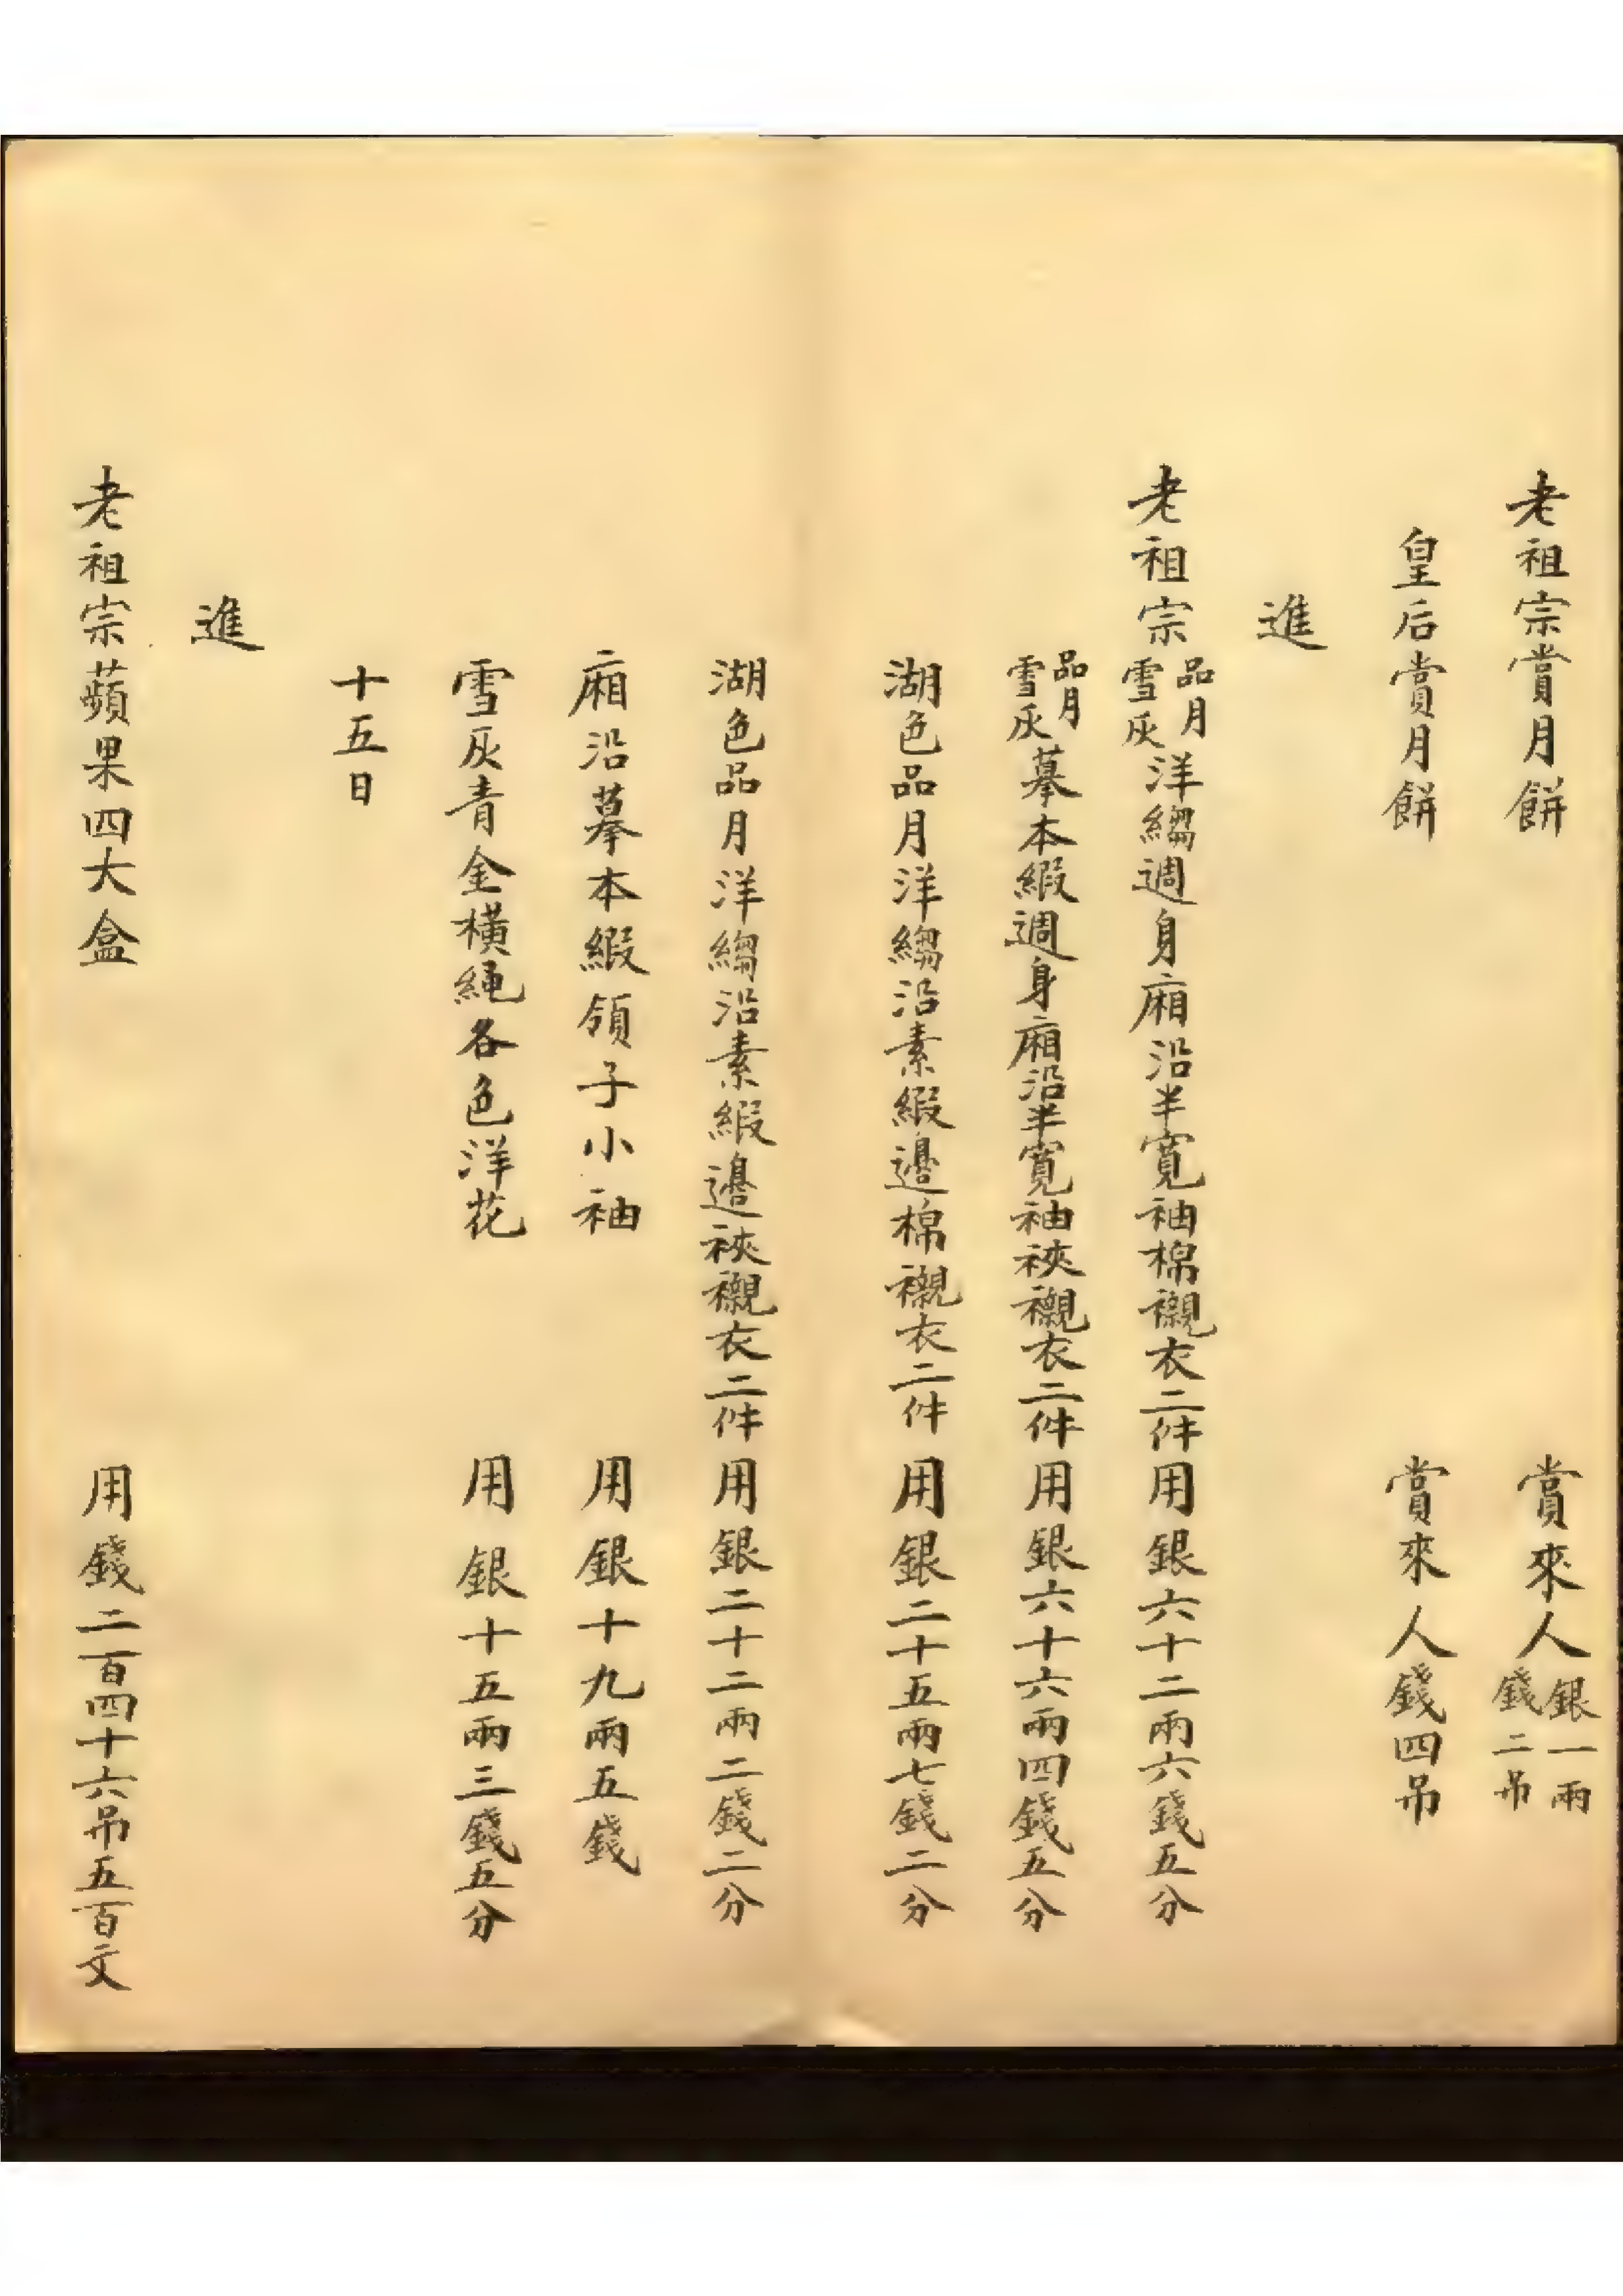 老祖宗賞月餅 賞來人銀一兩錢二吊
皇后賞月餅 賞來人錢四吊
進
老祖宗品月雪灰洋縐週身廂沿半寬袖棉襯衣二件用銀六十二兩六錢五分
品月雪灰摹本緞週身廂沿半寬袖裌襯衣二件用銀六十六兩四錢五分
湖色品月洋縐沿素緞邊棉襯衣二件用銀二十五兩七錢二分
湖色品月洋縐沿素緞邊裌襯衣二件用銀二十二兩二錢二分
廂沿摹本緞領子小袖 用銀十九兩五錢
雪灰青金橫繩各色洋花 用銀十五兩三錢五分
十五日
進
老祖宗蘋果四大盒 用錢二百四十六吊五百文